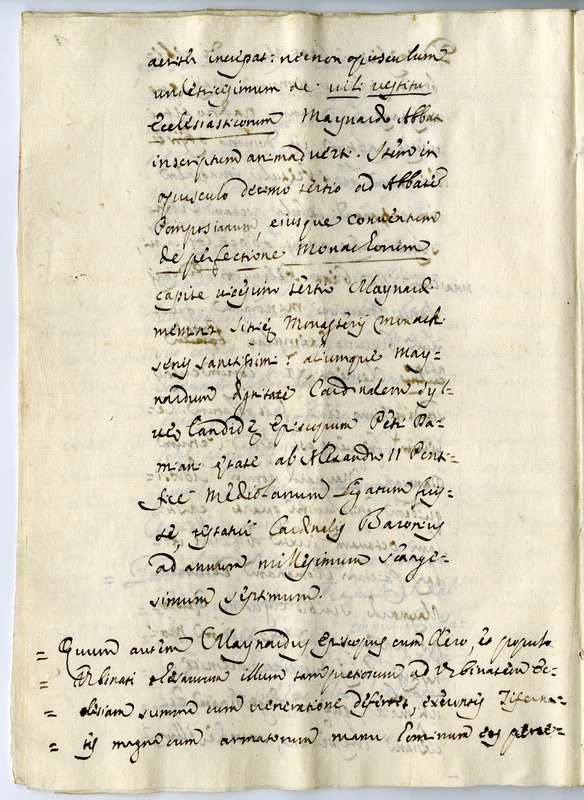 acriter increpat: necnon opusculum
undetricesimum de vili vestitu
Ecclesiasticorum Maynardo Abbati
inscriptum animadverti. Item in
opusculo decimo tertio ad Abbatem
Pomposianum, eiusque conventum
de perfectione Monachorum
capite vicesimo tertio Maynardi
meminit Sitrię Monasterij Monachi
senis sanctissimi: aliumque May=
nardum dignitate Cardinalem Syl=
vę Candidę Episcopum Petri Da=
miani ętate ab Alexandro II Ponti=
fice Mediolanum Legatum fuis=
se, testatur Cardinalis Baronius
ad annum millesimum sexage=
simum septimum.
= Quum autem Maynardus Episcopus cum Clero, et populo
= Urbinati thesaurum illum tam pretiosum ad Urbinatem Ec=
= clesiam summa cum veneratione deferret, exeuntis Tiferna=
= tis magna cum armatorum manu hominum eos